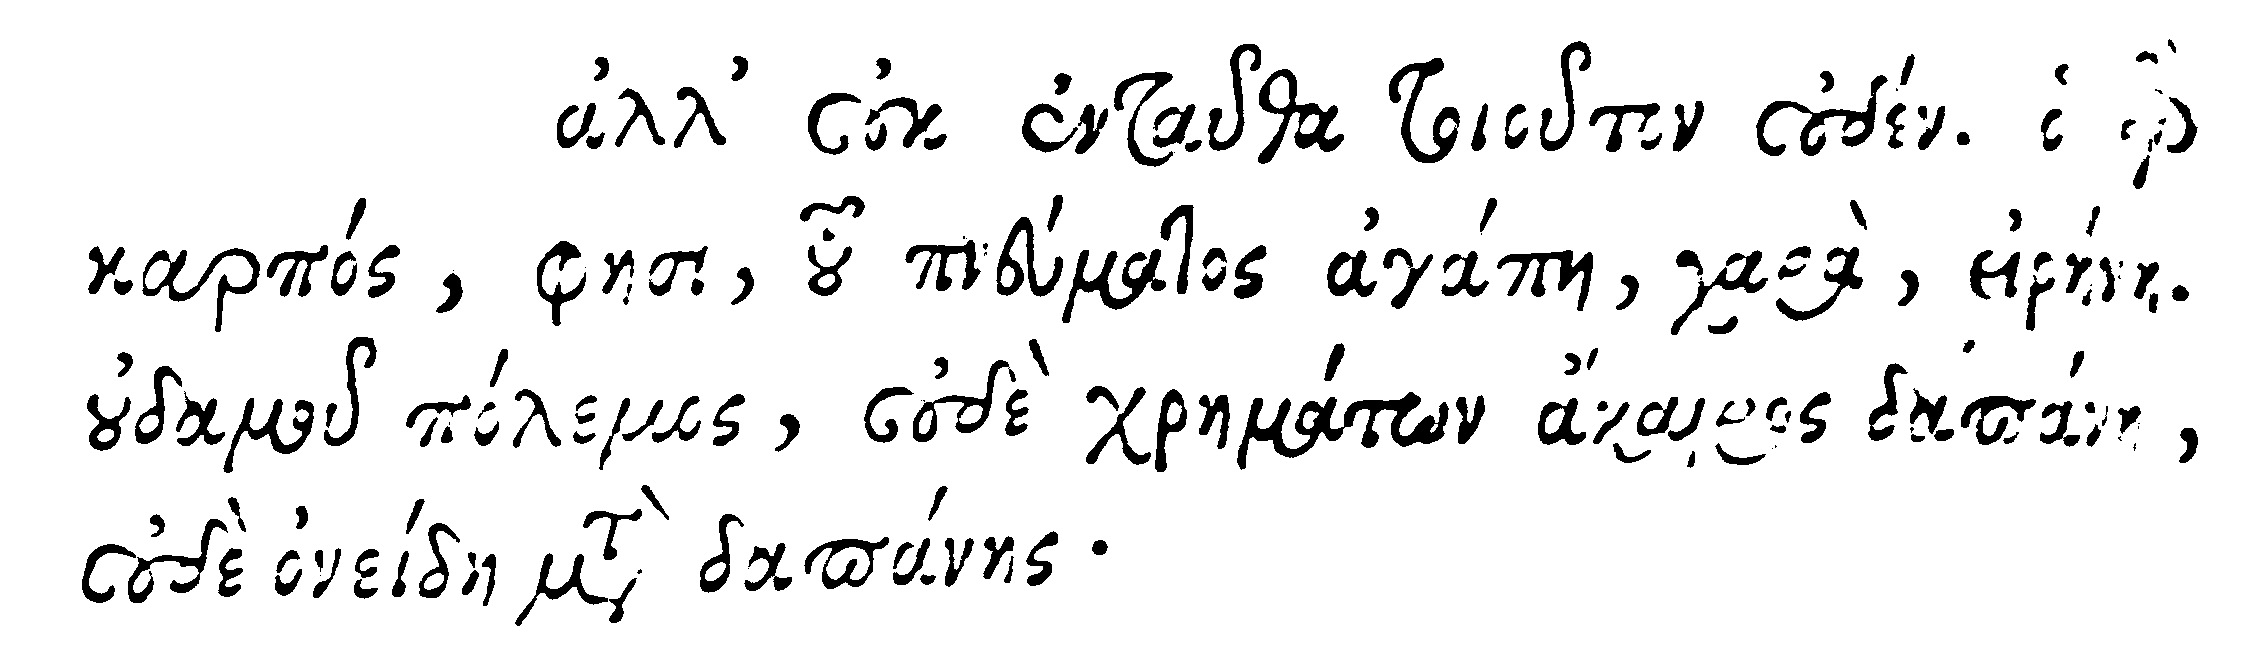 ἀλλ' οὐκ ἐνταῦθα τοιοῦτον οὐδέν. ὁ γὰρ
καρπός, φησι, τοῦ πνεύματος ἀγάπη, χαρὰ, εἰρήνη.
οὐδαμοῦ πόλεμος, οὐδὲ χρημάτων ἄκαιρος δαπάνη,
οὐδὲ ὀνείδη μετὰ δαπάνης.